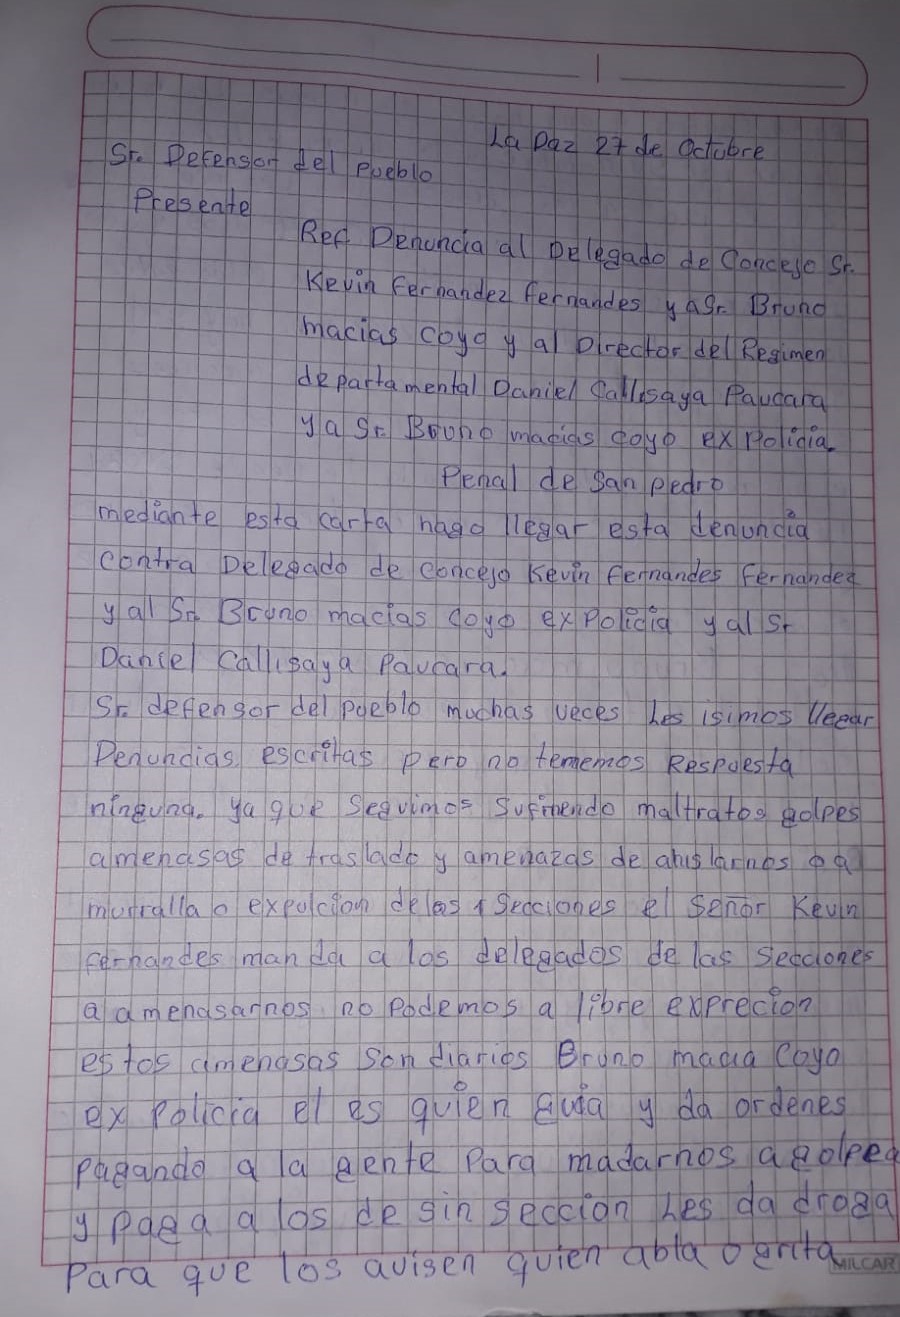 La Paz 27 de Octubre
Sr. Defensor del Pueblo
Presente
Ref Denuncia al Delegado de Concejo Sr.
Kevin Fernandez fernandes y a Sr. Bruno
macias Coyo y al Director del Regimen
departamental Daniel Callisaya Paucara
y a Sr. Bruno macias coyo ex Policia.
Penal de San pedro
mediante esta carta hago llegar esta denuncia
contra Delegado de concejo Kevin fernandes Fernandez
y al Sr. Bruno macias Coyo ex Policia y al Sr
Daniel Callisaya Paucara.
Sr. defensor del pueblo muchas veces Les isimos llegar
Denuncias escritas pero no tememos Respuesta
ninguna. ya que Seguimos Sufriendo maltratos golpes
amenasas de traslado y amenazas de o a
murralla o expulcion de las Secciones el Señor Kevin
fernandes manda a los delegados de las Secciones
a amenasarnos no Podemos a libre exprecion
estos amenasas Son diarios Bruno Coyo
ex Policia el es quien Guia y da ordenes
pagando a la gente Para madarnos a golpea
y paga a los de sin seccion Les da droga
Para que los avisen quien abla o grita
MILCAR